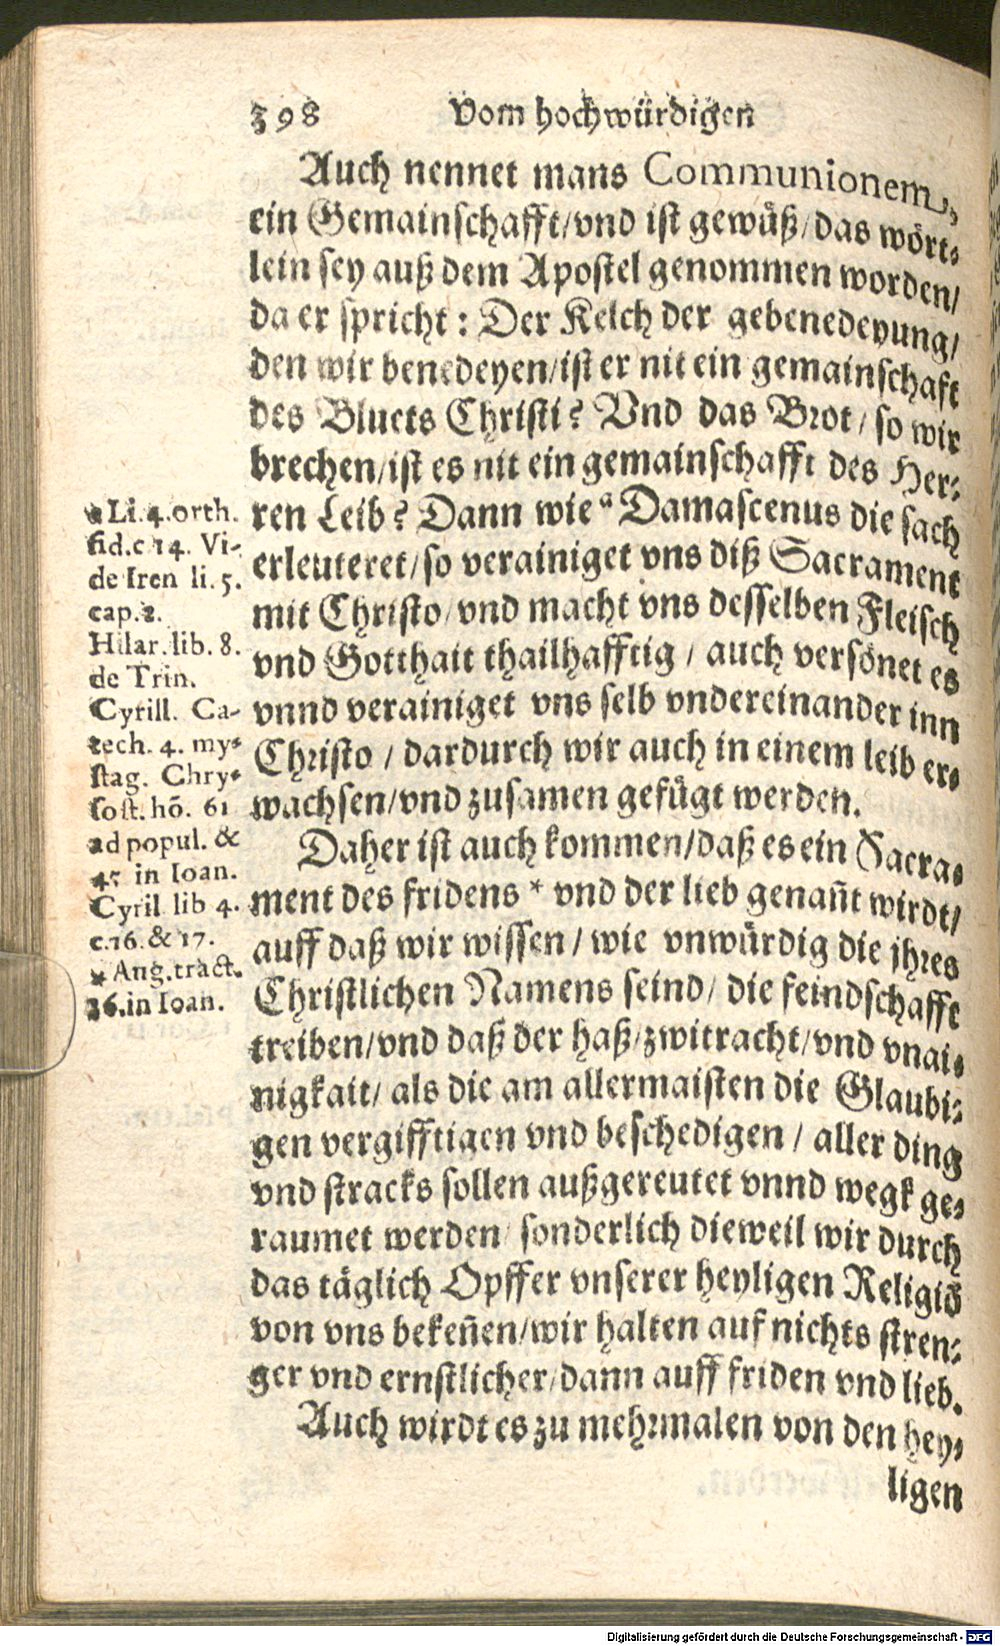 398 Vom hochwürdigen
Auch nennet mans Communionem,
ein Gemainschafft/vnd ist gewüß/das wört-
lein sey auß dem Apostel genommen worden/
da er spricht: Der Kelch der gebenedeyung/
den wir benedeyen/ist er nit ein gemainschaft
des Bluets Christi? Vnd das Brot/so wir
brechen/ist es nit ein gemainschafft des Her-
ren Leib? Dann wie a Damascenus die sach
erleuteret/so verainiget vns diß Sacrament
mit Christo/vnd macht vns desselben Fleisch
vnd Gotthait thailhafftig/auch versönet es
vnnd verainiget vns selb vndereinander inn
Christo/dardurch wir auch in einem leib er-
wachsen/vnd zusamen gefügt werden.
Daher ist auch kommen/daß es ein Sacra-
ment des fridens * vnd der lieb genañt wirdt/
auff daß wir wissen/wie vnwürdig die jhres
Christlichen Namens seind/die feindschafft
treiben/vnd daß der haß/zwitracht/vnd vnai-
nigkait/als die am allermaisten die Glaubi-
gen vergifftigen vnd beschedigen/aller ding
vnd stracks sollen außgereutet vnnd wegk ge-
raumet werden/sonderlich dieweil wir durch
das täglich Opffer vnserer heyligen Religiõ
von vns bekeñen/wir halten auf nichts stren-
ger vnd ernstlicher/dann auff friden vnd lieb.
Auch wirdt es zu mehrmalen von den hey-
ligen
a Li.4.orth.
fid.c 14. Vi-
de Iren li. 5.
cap.2.
Hilar.lib. 8.
de Trin.
Cyrill. Ca-
tech. 4. my-
stag. Chry-
sost. hõ. 61
ad popul. &
45 in Ioan.
Cyril lib 4.
c.16. & 17.
* Aug.tract.
26.in Ioan.
Digitalisierung gefördert durch die Deutsche Forschungsgemeinschaft - DFG